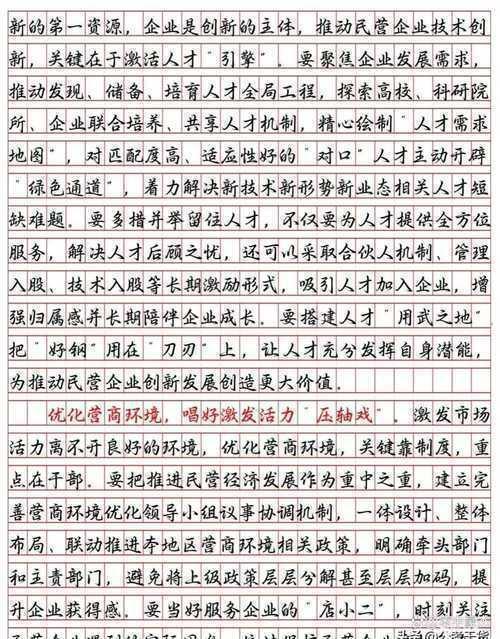 新的第一资源，企业是创新的主体，推动民营企业技术创
新，关键在于激活人才“引擎”。要聚焦企业发展需求，
推动发现、储备、培育人才全局工程，探索高校、科研院
所、企业联合培养、共享人才机制，精心绘制“人才需求
地图”，对匹配度高、适应性好的“对口”人才主动开辟
“绿色通道”，着力解决新技术新形势新业态相关人才短
缺难题。要多措并举留住人才，不仅要为人才提供全方位
服务，解决人才后顾之忧，还可以采取合伙人机制、管理
入股、技术入股等长期激励形式，吸引人才加入企业，增
强归属感并长期陪伴企业成长。要搭建人才“用武之地”
把“好钢”用在“刀刃”上，让人才充分发挥自身潜能，
为推动民营企业创新发展创造更大价值。
优化营商环境，唱好激发活力“压轴戏”。激发市场
活力离不开良好的环境，优化营商环境，关键靠制度，重
点在干部。要把推进民营经济发展作为重中之重，建立完
善营商环境优化领导小组议事协调机制，一体设计、整体
布局、联动推进本地区营商环境相关政策，明确牵头部门
和主责部门，避免将上级政策层层分解甚至层层加码，提
升企业获得感。要当好服务企业的“店小二”，时刻关注